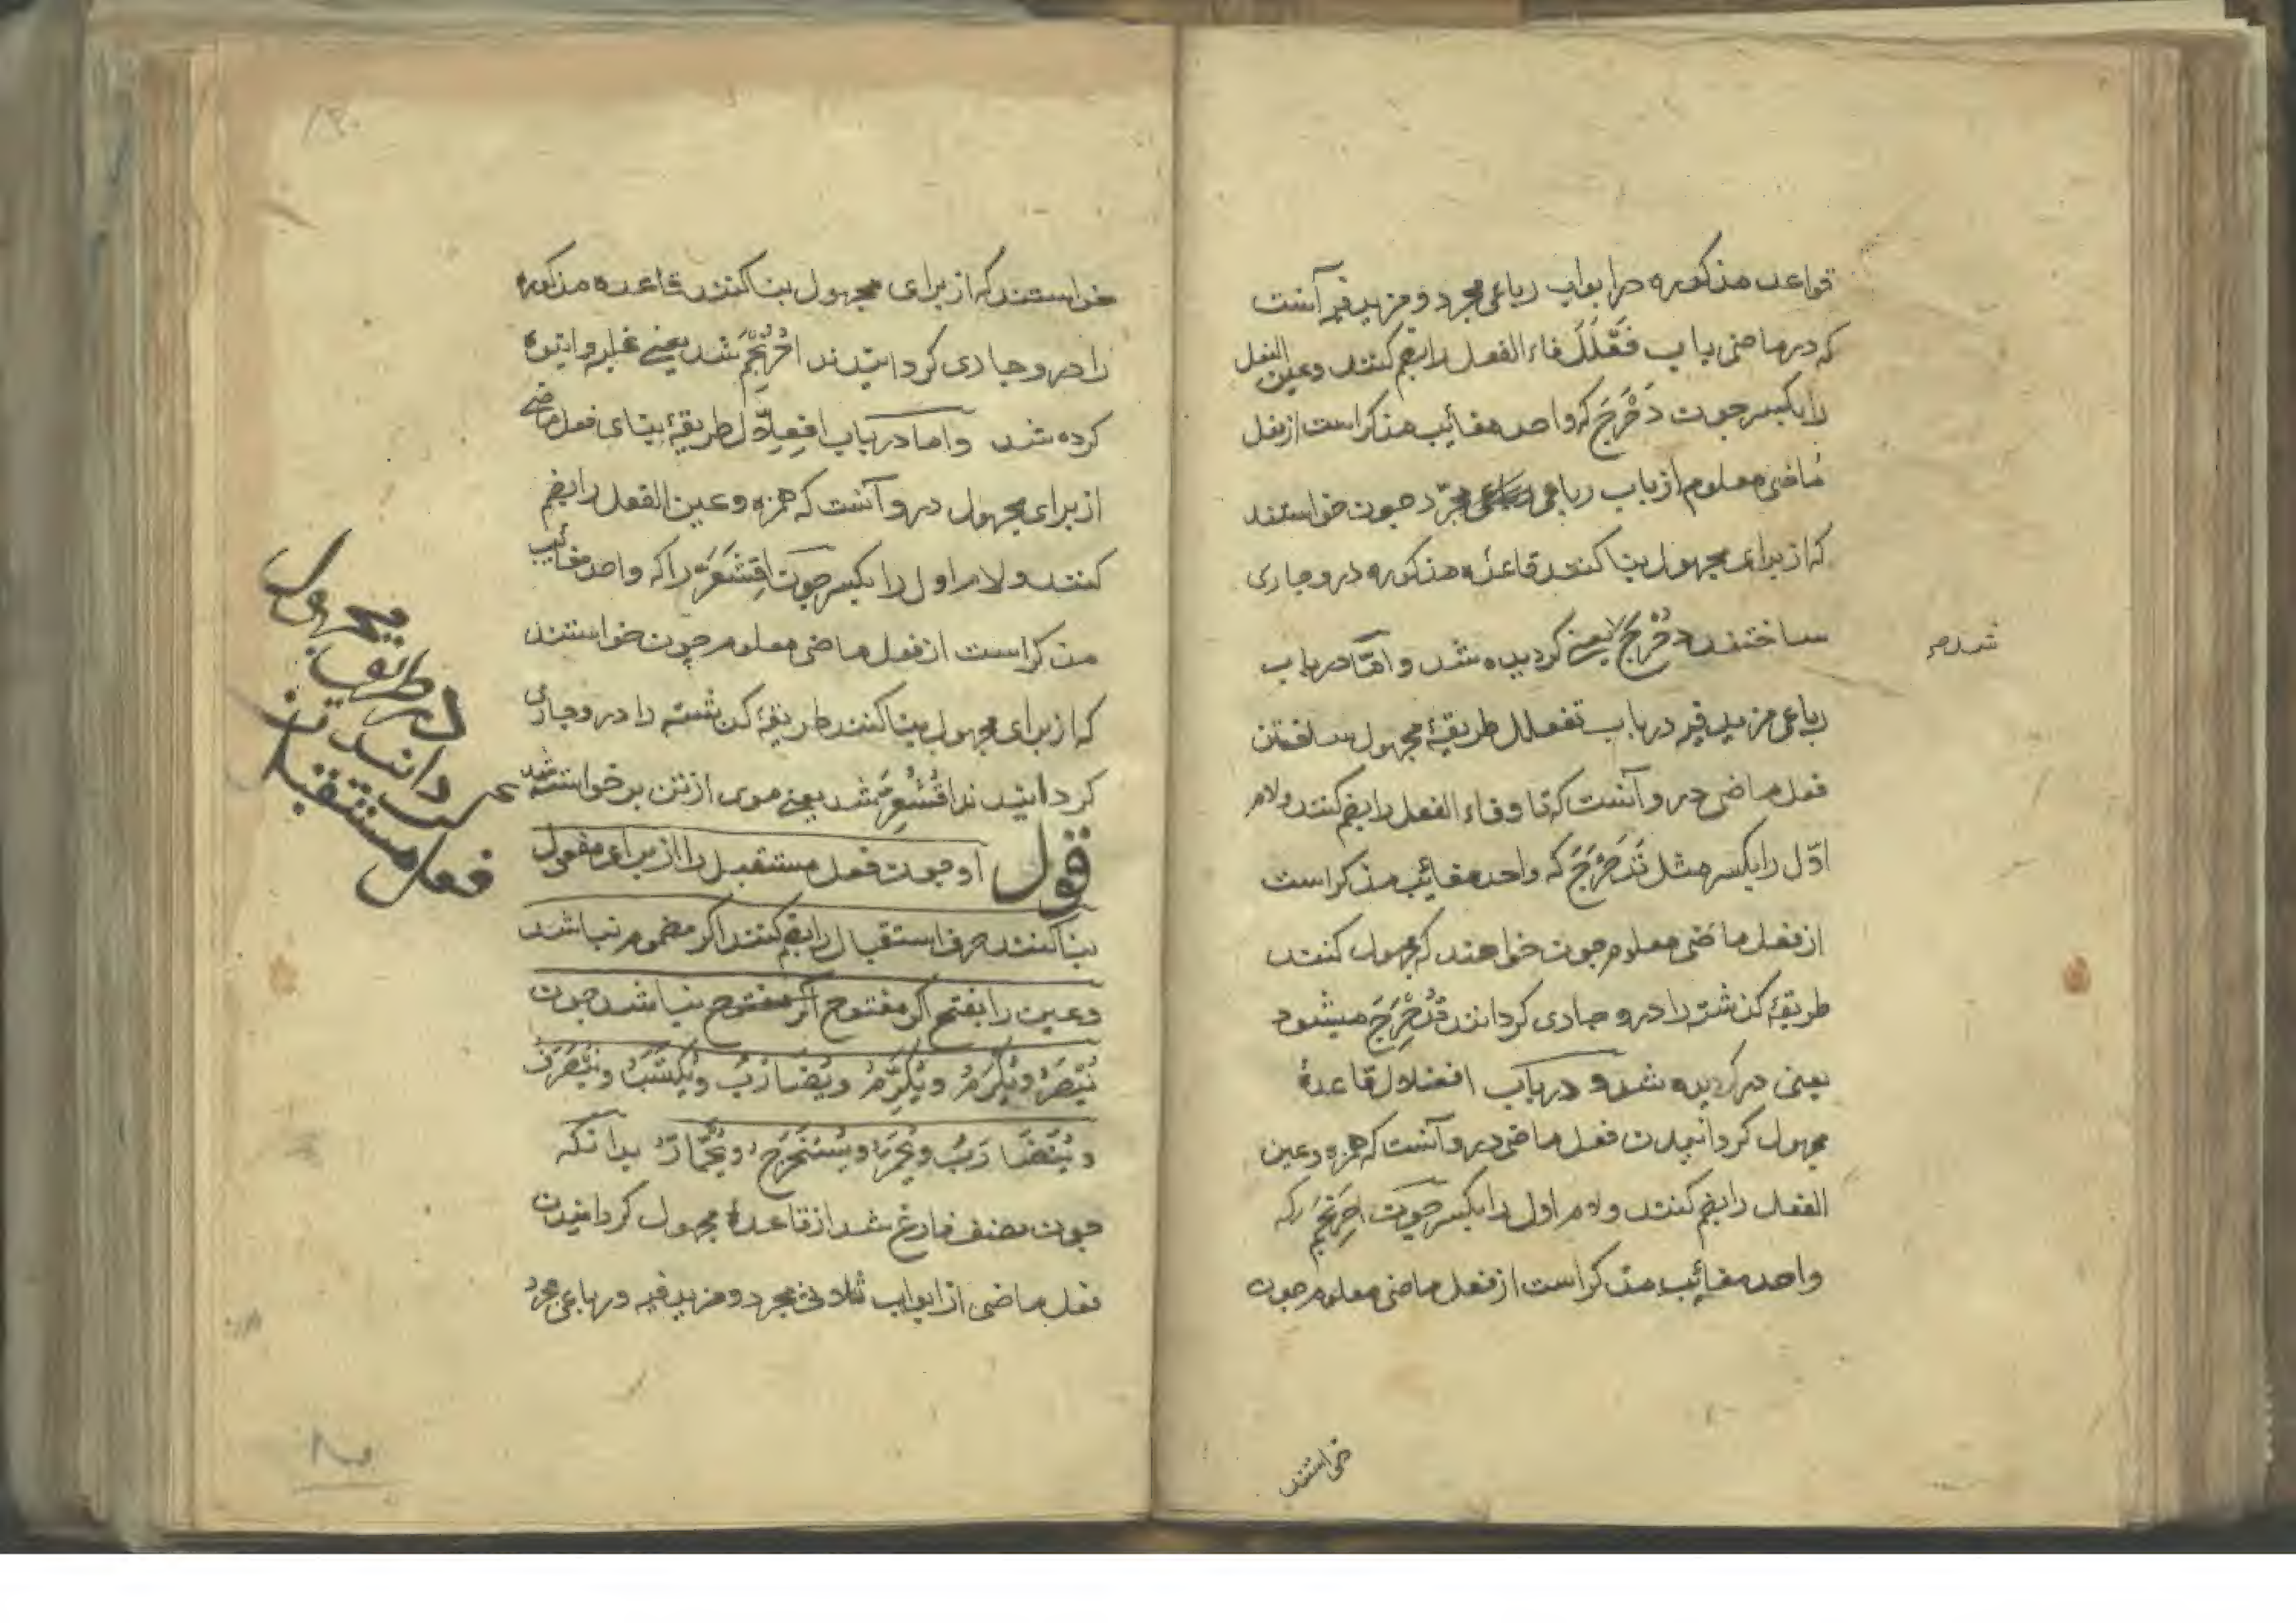 قواعد مذکوره در ابواب رباعی مجرد و مزید فیه آنست
که در ماضی باب فَعْلَلَ فاء الفعل را بضم کنند و عین الفعل
را بکسر چون دَحْرَجَ که واحد مغائب مذکر است از فعل
ماضی معلوم از باب رباعی مجرّد چون خواستند
که از برای مجهول بنا کنند قاعدهٔ مذکوره درو جاری
ساختند دُحْرِجَ یعنی کردیده شد و امّا در باب
شد صح
رباعی مزید فیه در باب تفعلل طریقهٔ مجهول ساختن
فعل ماضی درو آنست که تا و فاء الفعل را بضم کنند و لام
اوّل را بکسر مثل تَدَحْرَجَ که واحد مغائب مذکر است
از فعل ماضی معلوم چون خواهند که مجهول کنند
طریقهٔ کذشته را درو جاری کردانند تُدُحْرِجَ میشود
یعنی در کردیده شد و در باب افعنلال قاعدهٔ
مجهول کردانیدن فعل ماضی درو آنست که همزه و عین
الفعل را بضم کنند و لام اول را بکسر چون احرنجم را که
واحد مغائب مذکر است از فعل ماضی معلوم چون
خواستند
خواستند که از برای مجهول بنا کنند قاعده مذکوره
را درو جاری کردانیدند احْرُنْجِمَ شد یعنی غلبه و انبوه
کرده شد و اما در باب افعِلّال طریقهٔ بنای فعل ماضی
از برای مجهول درو آنست که همزه و عین الفعل را بضم
کنند و لام اول را بکسر چون اِقْشَعَرَّ را که واحد مغائب
مذکر است از فعل ماضی معلوم چون خواستند
که از برای مجهول بنا کنند طریقهٔ کذشته را درو جاری
کردانیدند اُقْشُعِرَّ شد یعنی موی از تن برخواسته شد
قول او چون فعل مستقبل را از برای مفعول
بنا کنند حرف استقبال را بضم کنند اکر مضموم نباشد
و عین را بفتح اکر مفتوح اکر مفتوح نباشد چون
یُنْصَرُ و یُکْرَمُ و یُکَرَّمُ و یُضَارَبُ و یُکْتَسَبُ و یُنْصَرَفُ
و یُتَضَارَبُ و یُحْمَرُّ و یُسْتَخْرَجُ و یُحْمَارُّ بدانکه
چون مصنف فارغ شد از قاعدهٔ مجهول کردانیدن
فعل ماضی از ابواب ثلاثی مجرد و مزید فیه و رباعی مجرد
در طریق مجهول
کردانیدن
فعل مستقبل